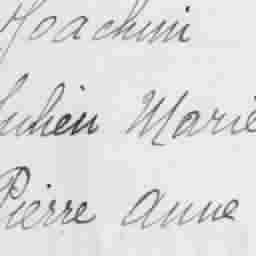 Joachim
Julien Marie
Pierre Anne